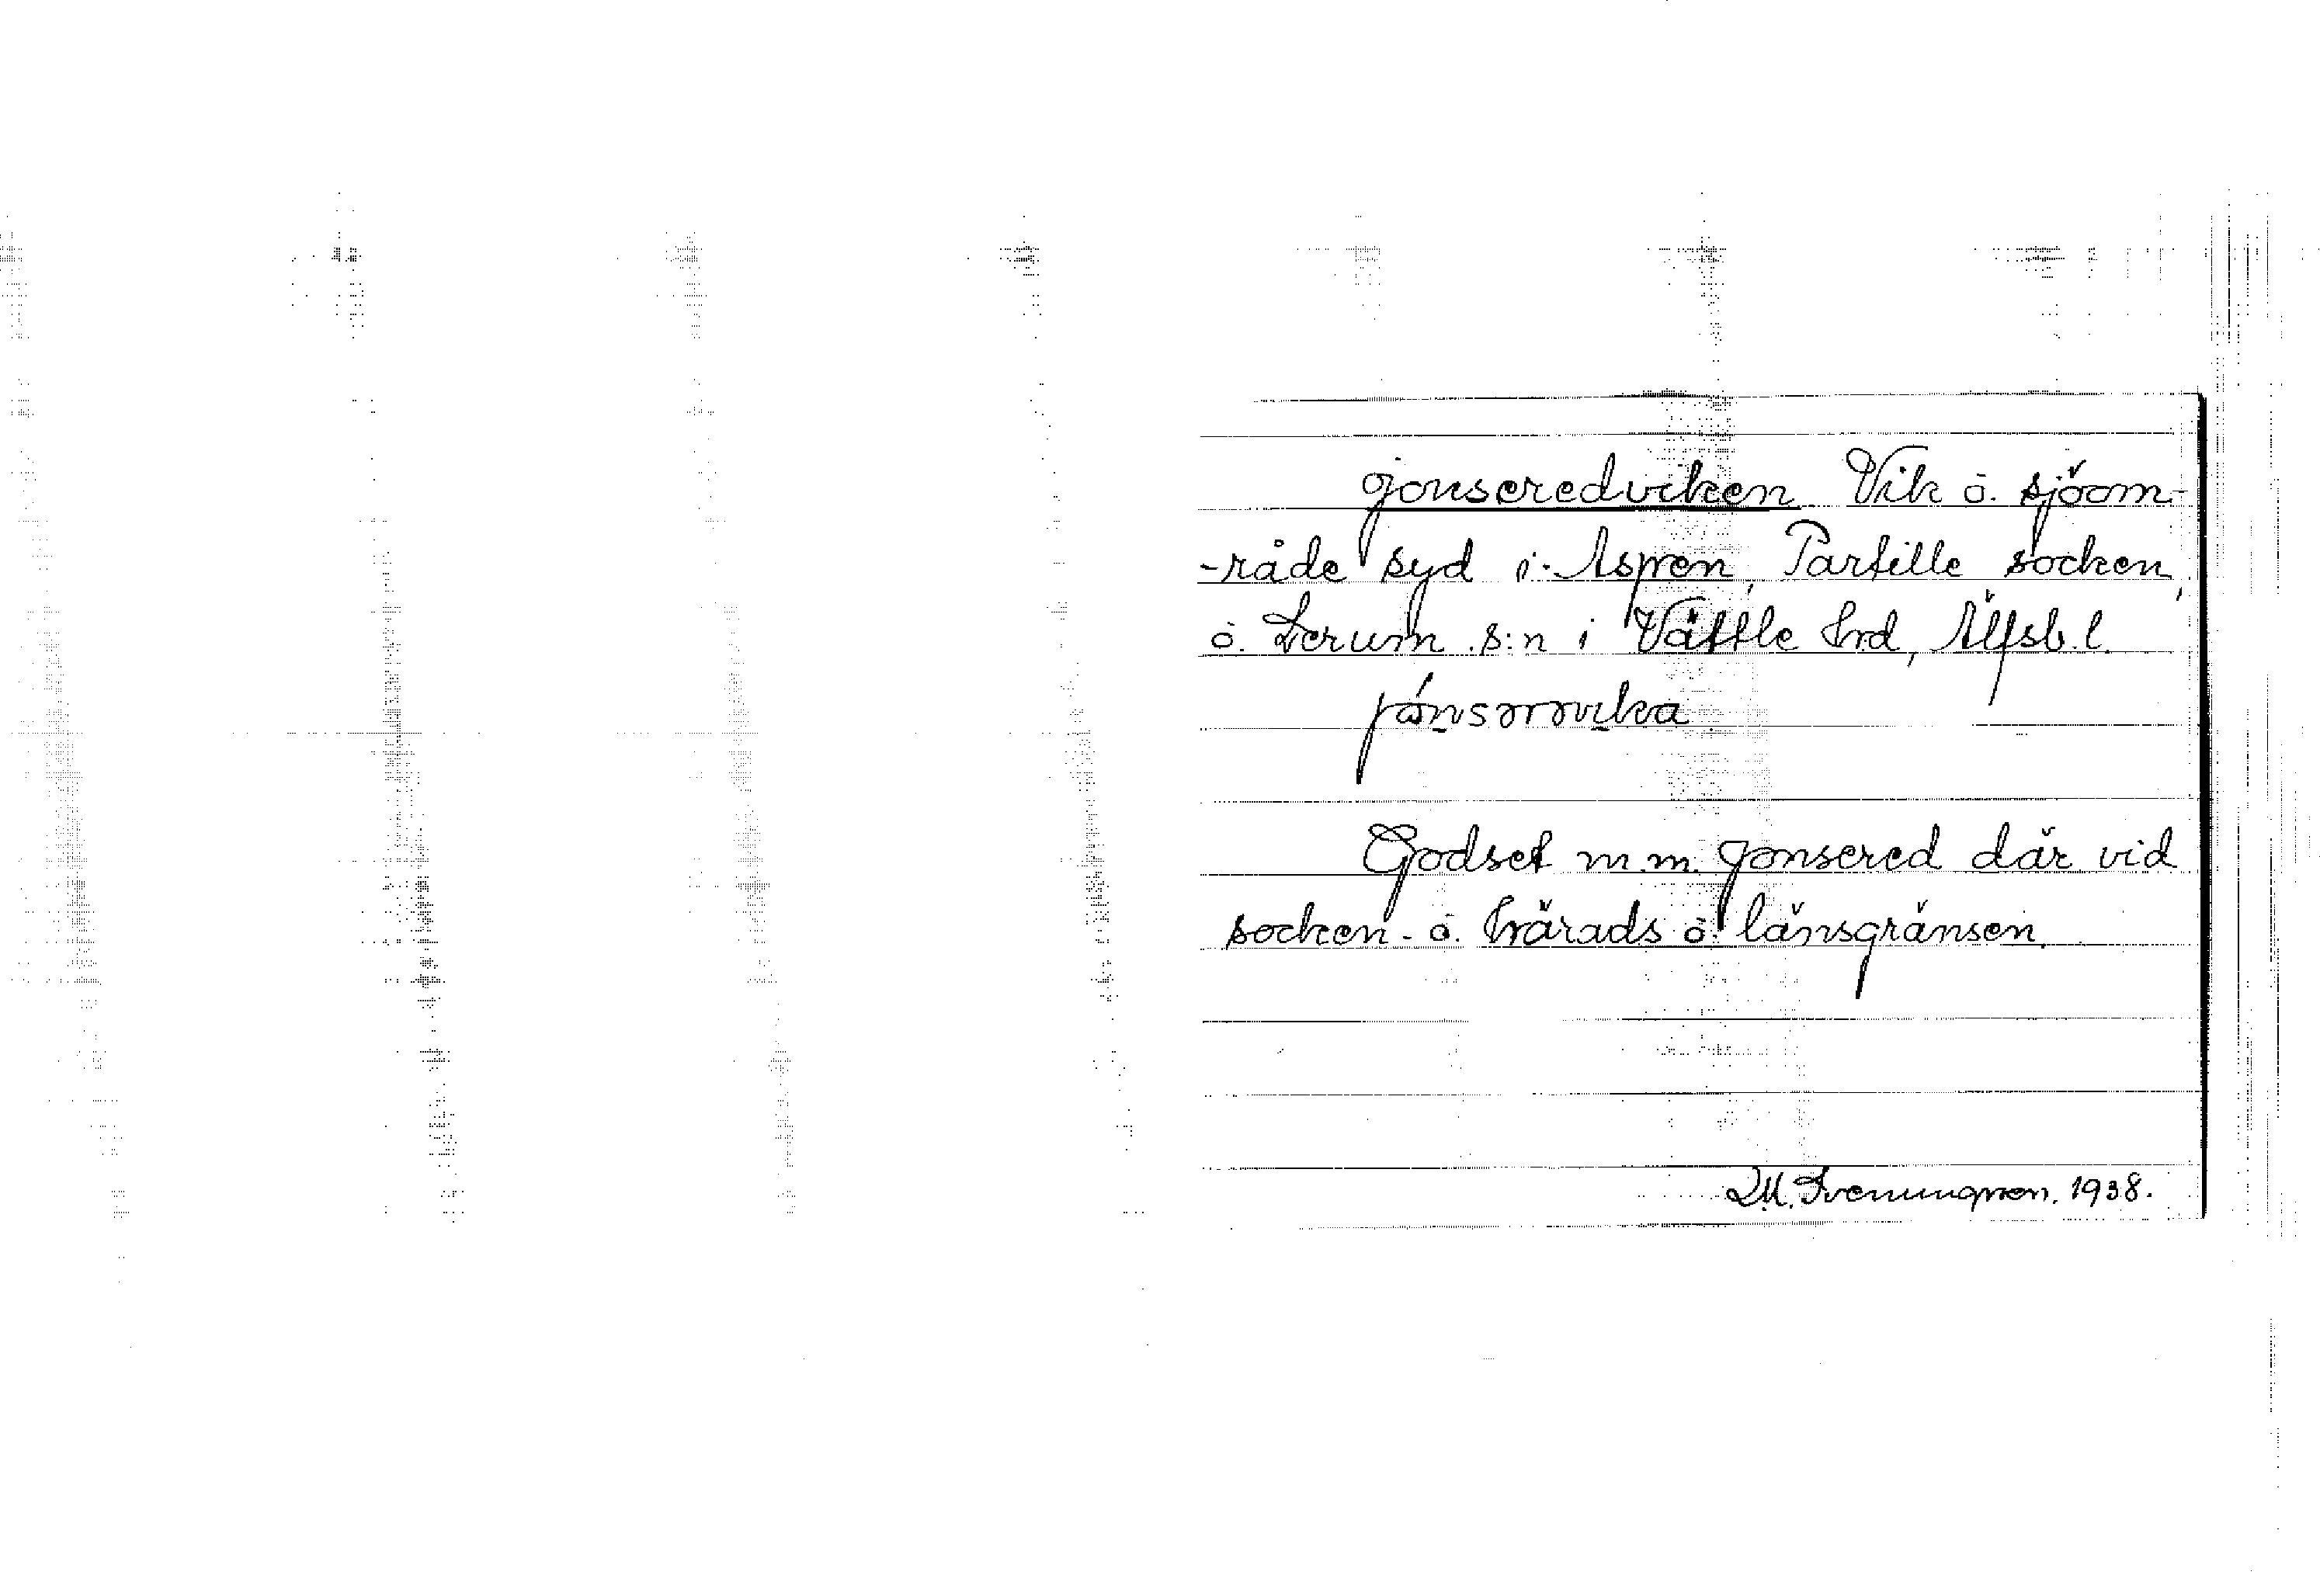 Jonseredviken. Vik o. sjöom-
-råde syd i Aspen, Partille socken,
o. Lerum s:n i Vättle hrd, Älfsb. l.
Godset m.m. Jonsered där vid
socken- o. härads o. länsgränsen.
D.M. Sveningson. 1938.